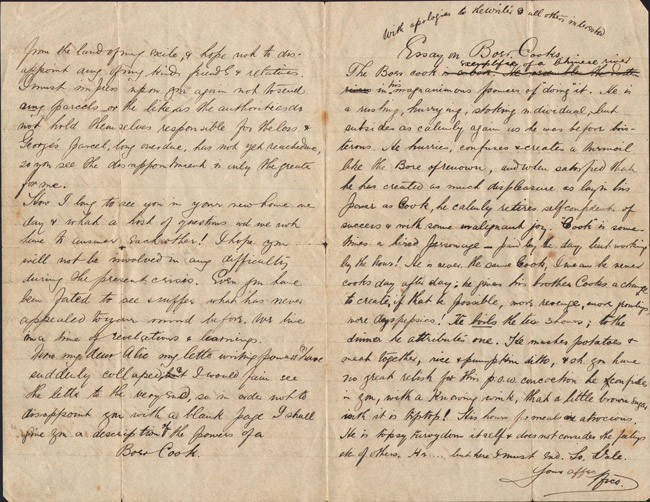 from the land of my exile, & hope not to dis-
appoint any of my kind friends & relatives.
I must impress upon you again not to send
any parcels or the like as the authorities do
not hold themselves responsible for the loss &
George's parcel, long overdue, has not yet reached me,
so you see the disappointment is only the greater
for me.
How I long to see you in your new home one
day & what a host of questions wd we not
have to answer each other! I hope you
will not be involved in any difficulty
during the present crisis. Even you have
been fated to see & suffer what has never
appealed to your mind before. We live
in a time of revelations & learnings.
Now my dear my letter writing powers have
suddenly collapsed but I would fain see
the letter to the very end, so in order not to
disappoint you with a blank page I shall
give you a description of the powers of a
Boer Cook.
With apologies to the writer & all others interested
Essay on Boer Cooks
The Boer cook
in his magnanimous powers of doing it. He is
a rushing, hurrying, individual, but
subsides as calmly again as he was before bois-
terous. He hurries, confuses & creates a turmoil
like the Bore of renown, and when satisfied that
he has created as much displeasure as lay in his
power as Cook, he calmly retires, self confident of
success & with some malignant joy. "Cook" is some-
times a hired personage – paid by the day but working
by the hour! He is never the same Cook, I mean he never
cooks day after day; he gives his brother Cooks a change
to create, if that be possible, more revenge, more grumbling,
more dyspepsia! He boils the tea 3 hours; to the
dinner he attributes one. He mashes potatoes &
meat together, rice & pumpkin ditto, & sh. you have
no great relish for this p.o.w. concoction he confides
in you, with a knowing wink, that a little brown sugar
with it is tiptop! His hours for meals are atrocious.
He is topsy turvydom itself & does not consider the feelings
etc of others. He .... but here I must end. So, Vale.
Yours affec